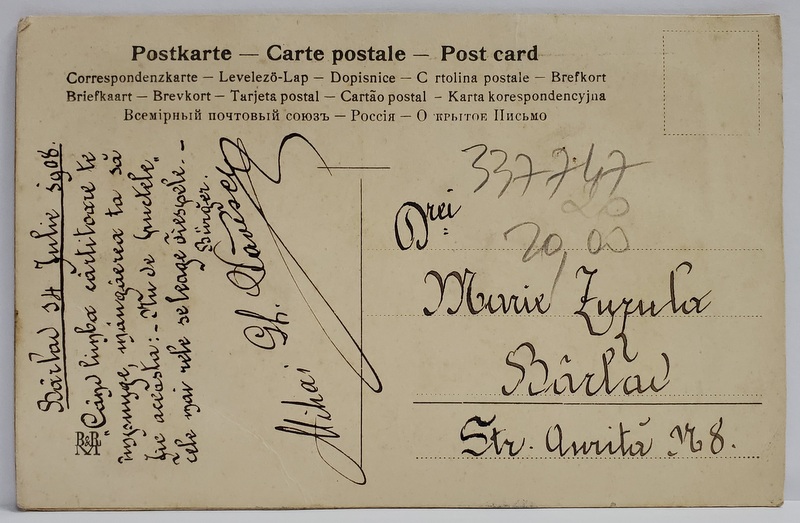 Postkarte — Carte postale — Post card
Correspondenzkarte — Levelező-Lap — Dopisnice — C rtolina postale — Brefkort
Briefkaart — Brevkort — Tarjeta postal — Cartão postal – Karta korespondencyjna
Всемірный почтовый союзъ — Россія — О крытое Письмо
Bârlad 24 Iulie 1908.
"Când limba cârtitoare te
împunge, mângâerea ta să
fie aceasta: - Nu de fructele
cele mai rele se leagă viespele. —
Bürger.
Mihai Gh.
337747
20
Drei
20,00
Marie
Bârlad
Str. Aurită N 8.
B&R